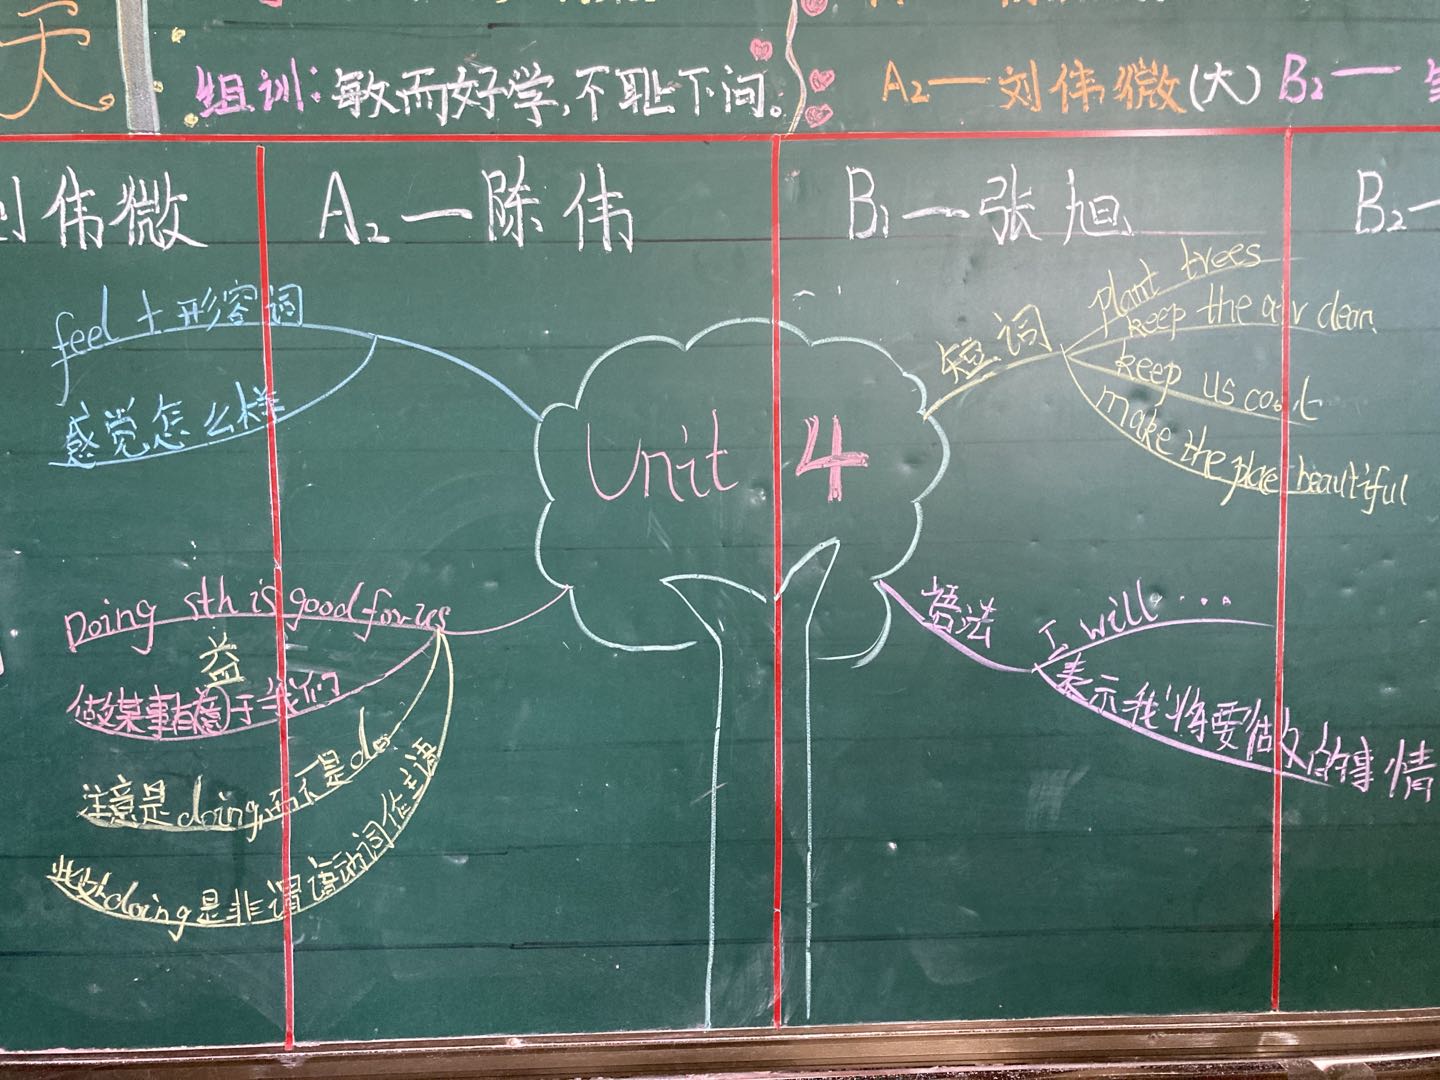 天
组训：敏而好学，不耻下问。
A2一刘伟微(大) B2一
刘伟微
A2一陈伟
B1一张旭
B2一
feel + 形容词
感觉怎么样
Unit 4
短词
plant trees
keep the air clean
keep us cool
make the plae beautiful
Doing sth is good for us
益
做某事有意于我们
注意是doing,而不是do
此处doing是非谓语动词作主语
语法
I will ...
表示我将要做的事情